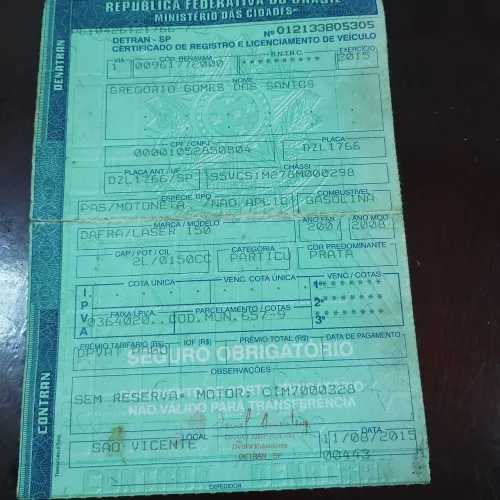 REPÚBLICA FEDERATIVA DO BRASIL
MINISTÉRIO DAS CIDADES
DENATRAN
DETRAN - SP Nº 012133805305
CERTIFICADO DE REGISTRO E LICENCIAMENTO DE VEÍCULO
VIA CÓD. RENAVAM R.N.T.R.C. EXERCÍCIO
1 00961772000 ********** 2015
NOME
GREGORIO GOMES DOS SANTOS
CPF / CNPJ PLACA
00001052850804 DZL1766
PLACA ANT / UF CHASSI
DZL1766/SP 95VCS1M278M000298
ESPÉCIE TIPO COMBUSTÍVEL
PAS/MOTONETA /NAO APLIC GASOLINA
MARCA / MODELO ANO FAB ANO MOD
DAFRA/LASER 150 2007 2008
CAP / POT / CIL CATEGORIA COR PREDOMINANTE
2L/0150CC PARTICU PRATA
IPVA
COTA ÚNICA VENC. COTA ÚNICA VENC / COTAS
1ª
FAIXA I.P.V.A PARCELAMENTO / COTAS
2ª
0364020..COD.MUN.657-9
3ª
PRÊMIO TARIFÁRIO (R$) IOF (R$) PRÊMIO TOTAL (R$) DATA DE PAGAMENTO
DPVAT PAGO
SEGURO OBRIGATÓRIO
OBSERVAÇÕES
SEM RESERVA* MOTOR: C1M7000328
NÃO VÁLIDO PARA TRANSFERÊNCIA
CONTRAN
LOCAL DATA
SAO VICENTE 11/08/2015
DETRAN-SP
00443
EXPEDIDOR